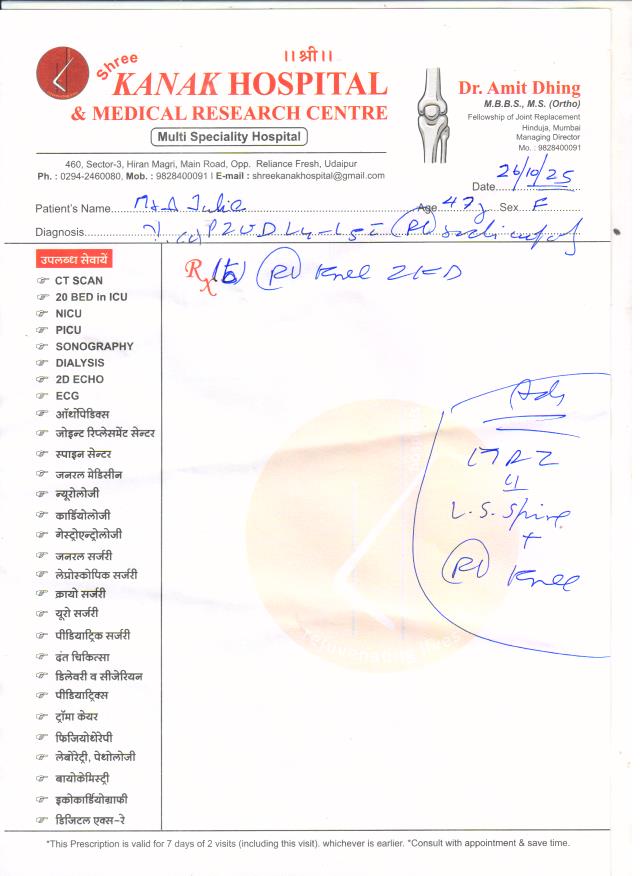 ।। श्री ।।
Shree
KANAK HOSPITAL
& MEDICAL RESEARCH CENTRE
Multi Speciality Hospital
460, Sector-3, Hiran Magri, Main Road, Opp. Reliance Fresh, Udaipur
Ph. : 0294-2460080, Mob. : 9828400091 I E-mail : shreekanakhospital@gmail.com
Dr. Amit Dhing
M.B.B.S., M.S. (Ortho)
Fellowship of Joint Replacement
Hinduja, Mumbai
Managing Director
Mo. : 9828400091
Date 26/10/25
Patient's Name Age 47y Sex F
Diagnosis L4-L5 Rt
Rx Rt Knee
Adv
L.S. Spine
+
Rt Knee
उपलब्ध सेवायें
CT SCAN
20 BED in ICU
NICU
PICU
SONOGRAPHY
DIALYSIS
2D ECHO
ECG
ऑर्थोपिडिक्स
जोइन्ट रिप्लेसमेंट सेन्टर
स्पाइन सेन्टर
जनरल मेडिसीन
न्यूरोलोजी
कार्डियोलोजी
गेस्ट्रोएन्ट्रोलोजी
जनरल सर्जरी
लेप्रोस्कोपिक सर्जरी
क्रायो सर्जरी
यूरो सर्जरी
पीडियाट्रिक सर्जरी
दंत चिकित्सा
डिलेवरी व सीजेरियन
पीडियाट्रिक्स
ट्रॉमा केयर
फिजियोथेरेपी
लेबोरेट्री, पेथोलोजी
बायोकेमिस्ट्री
इकोकार्डियोग्राफी
डिजिटल एक्स-रे
rejuvenating lives
*This Prescription is valid for 7 days of 2 visits (including this visit). whichever is earlier. *Consult with appointment & save time.